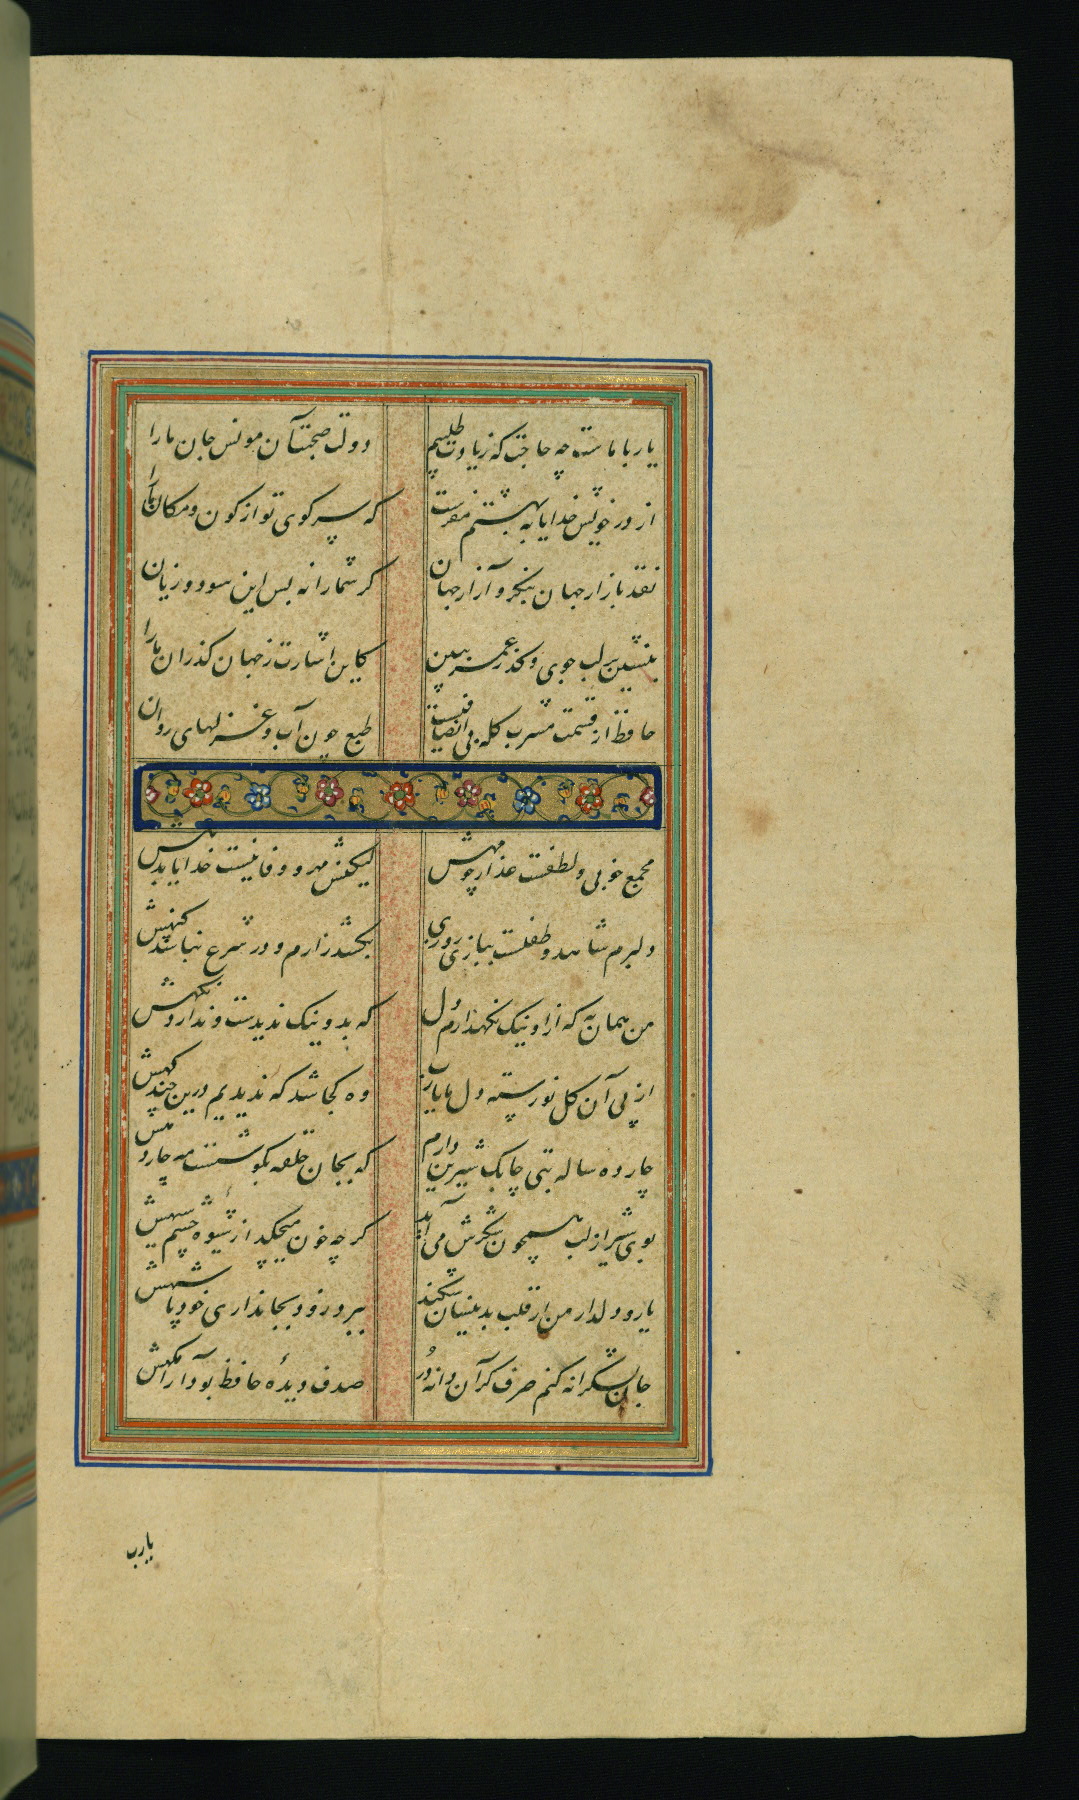 یار با ماست چه حاجت که زیادت طلبیم دولت صحبت آن مونس جان ما را
از در خویش خدایا به بهشتم مفرست که سر کوی تو از کون و مکان ما را
نقد بازار جهان بنکر و آزار جهان کر شما را نه بس این سود و زیان
بنشین بر لب جوی و کذر عمر ببین کاین اشارت ز جهان کذران ما را
حافظ از قسمت مشرب کله بی انصافیست طبع چون آب و غزلهای روان
مجمع خوبی و لطفست عذار چو مهش لیکنش مهر و وفا نیست خدایا بدهش
دلبرم شاهد و طفلست ببازی روزی بکشد زارم و در شرع نباشد کنهش
من همان به که ازو نیک نکهدارم دل که بد و نیک ندیدست و ندارد نکهش
از پی آن کل نورسته دل ما یارب وه کجا شد که ندیدیم درین چند کهش
چارده ساله بتی چابک شیرین دارم که بجان حلقه بکوشست مه چاردهش
بوی شیر از لب همچون شکرش می آید کر چه خون میچکد از شیوه چشم سیهش
یار دلدار من ار قلب بدینسان شکند ببرد زود بجانداری خود پادشهش
جان بشکرانه کنم صرف کر آن دانه در صدف دیدهٔ حافظ بود آرامکهش
یارب